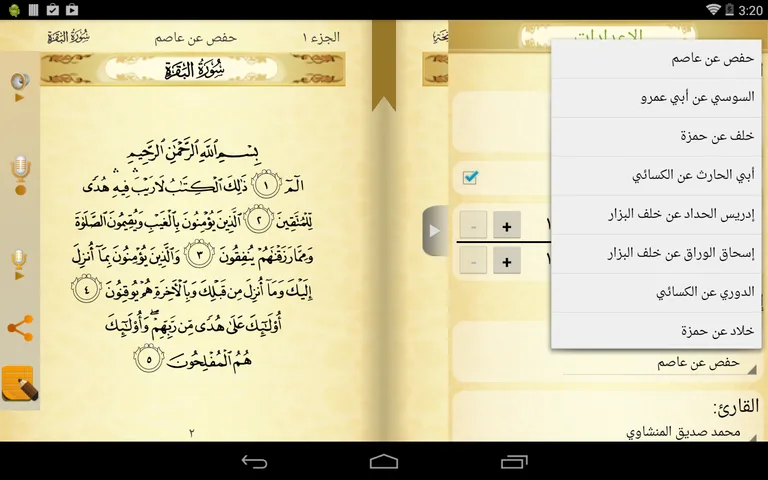 3:20
الجزء ١
حفص عن عاصم
سُورَةُ البَقَرَةِ
سُورَةُ البَقَرَةِ
بِسْمِ ٱللَّهِ ٱلرَّحْمَٰنِ ٱلرَّحِيمِ
الٓمٓ ١ ذَٰلِكَ ٱلْكِتَٰبُ لَا رَيْبَ ۛ فِيهِ ۛ هُدًى
لِّلْمُتَّقِينَ ٢ ٱلَّذِينَ يُؤْمِنُونَ بِٱلْغَيْبِ وَيُقِيمُونَ ٱلصَّلَوٰةَ
وَمِمَّا رَزَقْنَٰهُمْ يُنفِقُونَ ٣ وَٱلَّذِينَ يُؤْمِنُونَ بِمَآ أُنزِلَ
إِلَيْكَ وَمَآ أُنزِلَ مِن قَبْلِكَ وَبِٱلْءَاخِرَةِ هُمْ يُوقِنُونَ ٤
أُو۟لَٰٓئِكَ عَلَىٰ هُدًى مِّن رَّبِّهِمْ ۖ وَأُو۟لَٰٓئِكَ
هُمُ ٱلْمُفْلِحُونَ ٥
٢
الإعدادات
حفص عن عاصم
السوسي عن أبي عمرو
خلف عن حمزة
أبي الحارث عن الكسائي
إدريس الحداد عن خلف البزار
إسحاق الوراق عن خلف البزار
الدوري عن الكسائي
خلاد عن حمزة
- + ١
- + ١
حفص عن عاصم
القارئ:
محمد صديق المنشاوي